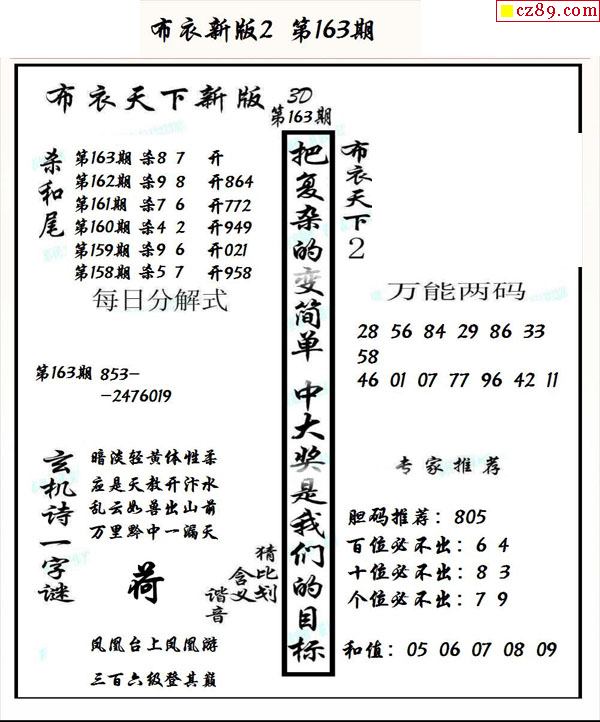 cz89.com
布衣新版2 第163期
布衣天下新版 3D
第163期
杀和尾
第163期 杀8 7 开
第162期 杀9 8 开864
第161期 杀7 6 开772
第160期 杀4 2 开949
第159期 杀9 6 开021
第158期 杀5 7 开958
每日分解式
第163期 853-
-2476019
玄机诗一字谜
暗淡轻黄体性柔
应是天教开汴水
乱云如兽出山前
万里黔中一漏天
荷
猜比划
含义
谐音
凤凰台上凤凰游
三百六级登其巅
把复杂的变简单 中大奖是我们的目标
布衣天下2
万能两码
28 56 84 29 86 33
58
46 01 07 77 96 42 11
专家推荐
胆码推荐：805
百位必不出：6 4
十位必不出：8 3
个位必不出：7 9
和值：05 06 07 08 09